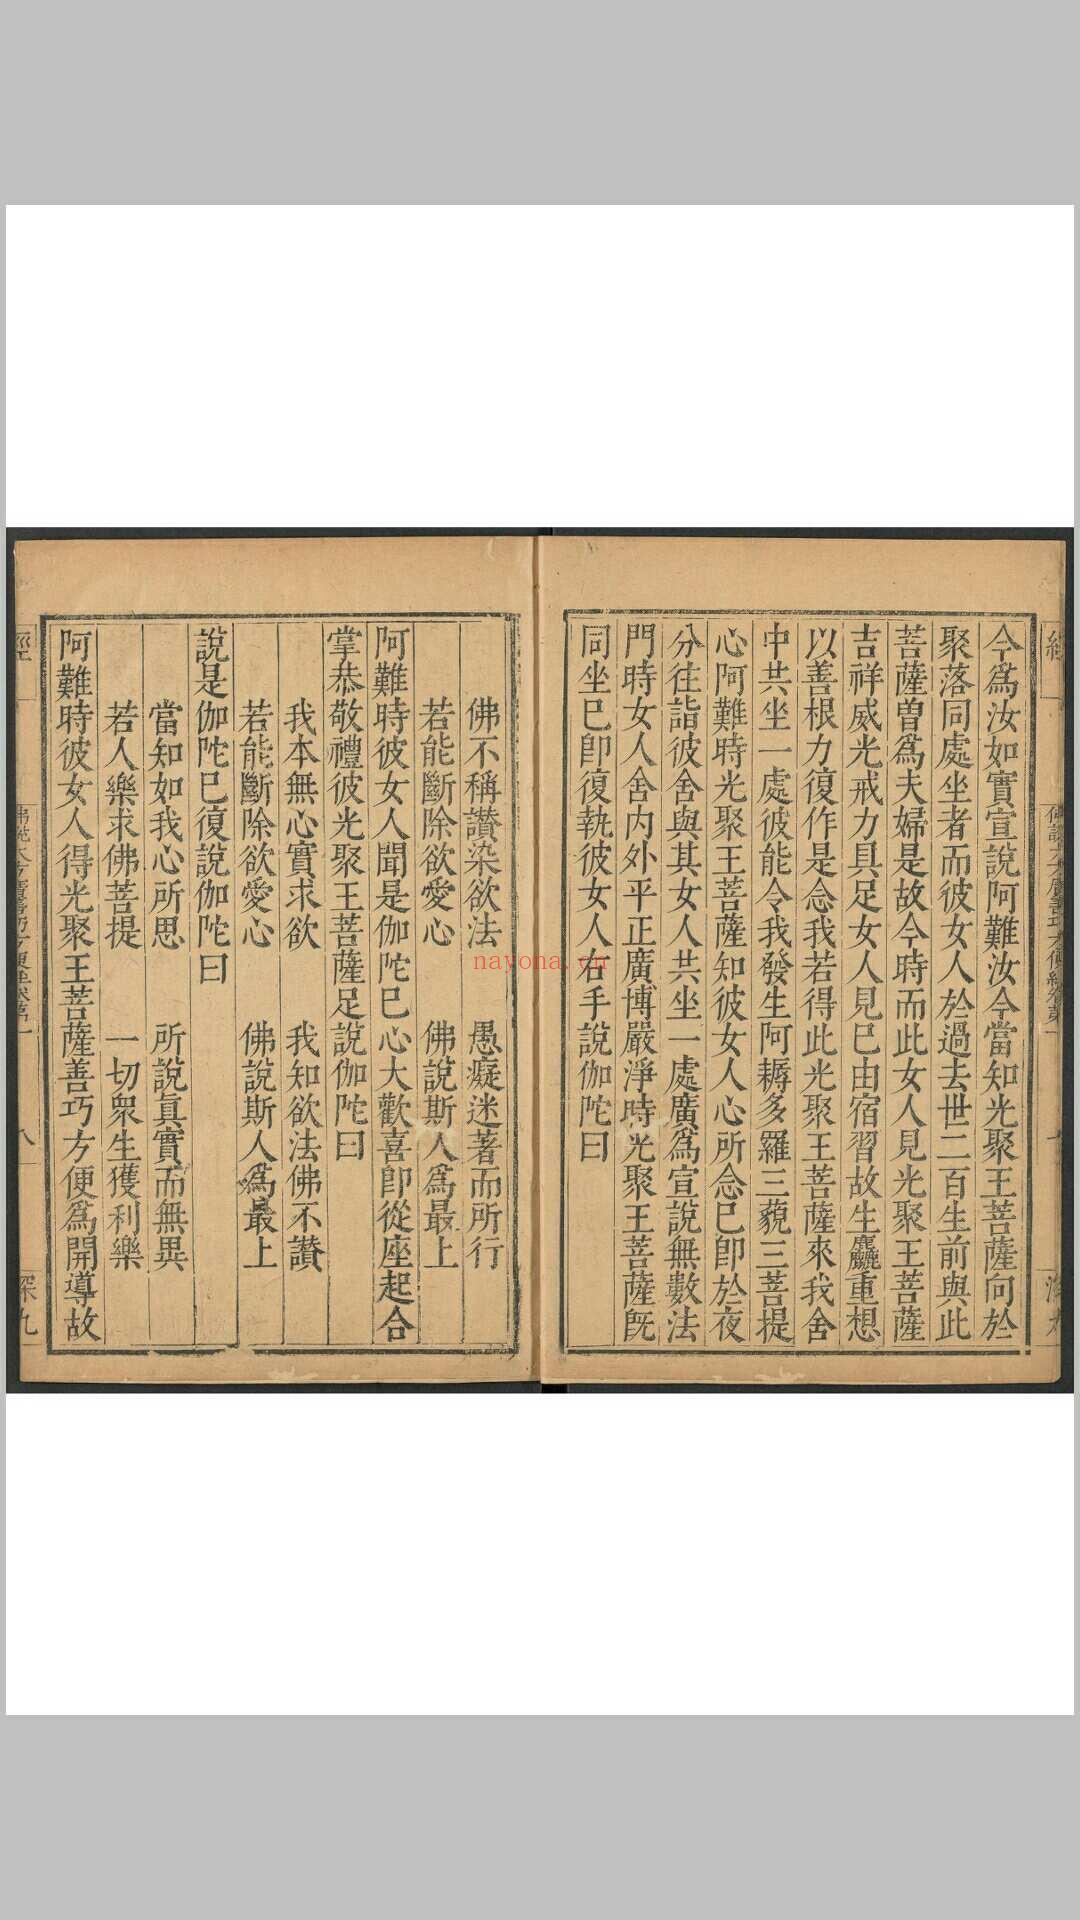 今爲汝如實宣說阿難汝今當知光聚王菩薩向於
聚落同處坐者而彼女人於過去世二百生前與此
菩薩曽爲夫婦是故今時而此女人見光聚王菩薩
吉祥威光戒力具足女人見巳由宿習故生麤重想
以善根力復作是念我若得此光聚王菩薩來我舍
中共坐一處彼能令我發生阿耨多羅三藐三菩提
心阿難時光聚王菩薩知彼女人心所念巳卽於夜
分往詣彼舍與其女人共坐一處廣爲宣說無數法
門時女人舍内外平正廣博嚴淨時光聚王菩薩旣
同坐巳卽復執彼女人右手說伽陀曰
佛不稱讃染欲法 愚癡迷著而所行
若能斷除欲愛心 佛說斯人爲最上
阿難時彼女人聞是伽陀巳心大歡喜卽從座起合
掌恭敬禮彼光聚王菩薩足說伽陀曰
我本無心實求欲 我知欲法佛不讃
若能斷除欲愛心 佛說斯人爲最上
說是伽陀巳復說伽陀曰
當知如我心所思 所說眞實而無異
若人樂求佛菩提 一切衆生獲利樂
阿難時彼女人得光聚王菩薩善巧方便爲開導故
經
八
深九
nayona.cn